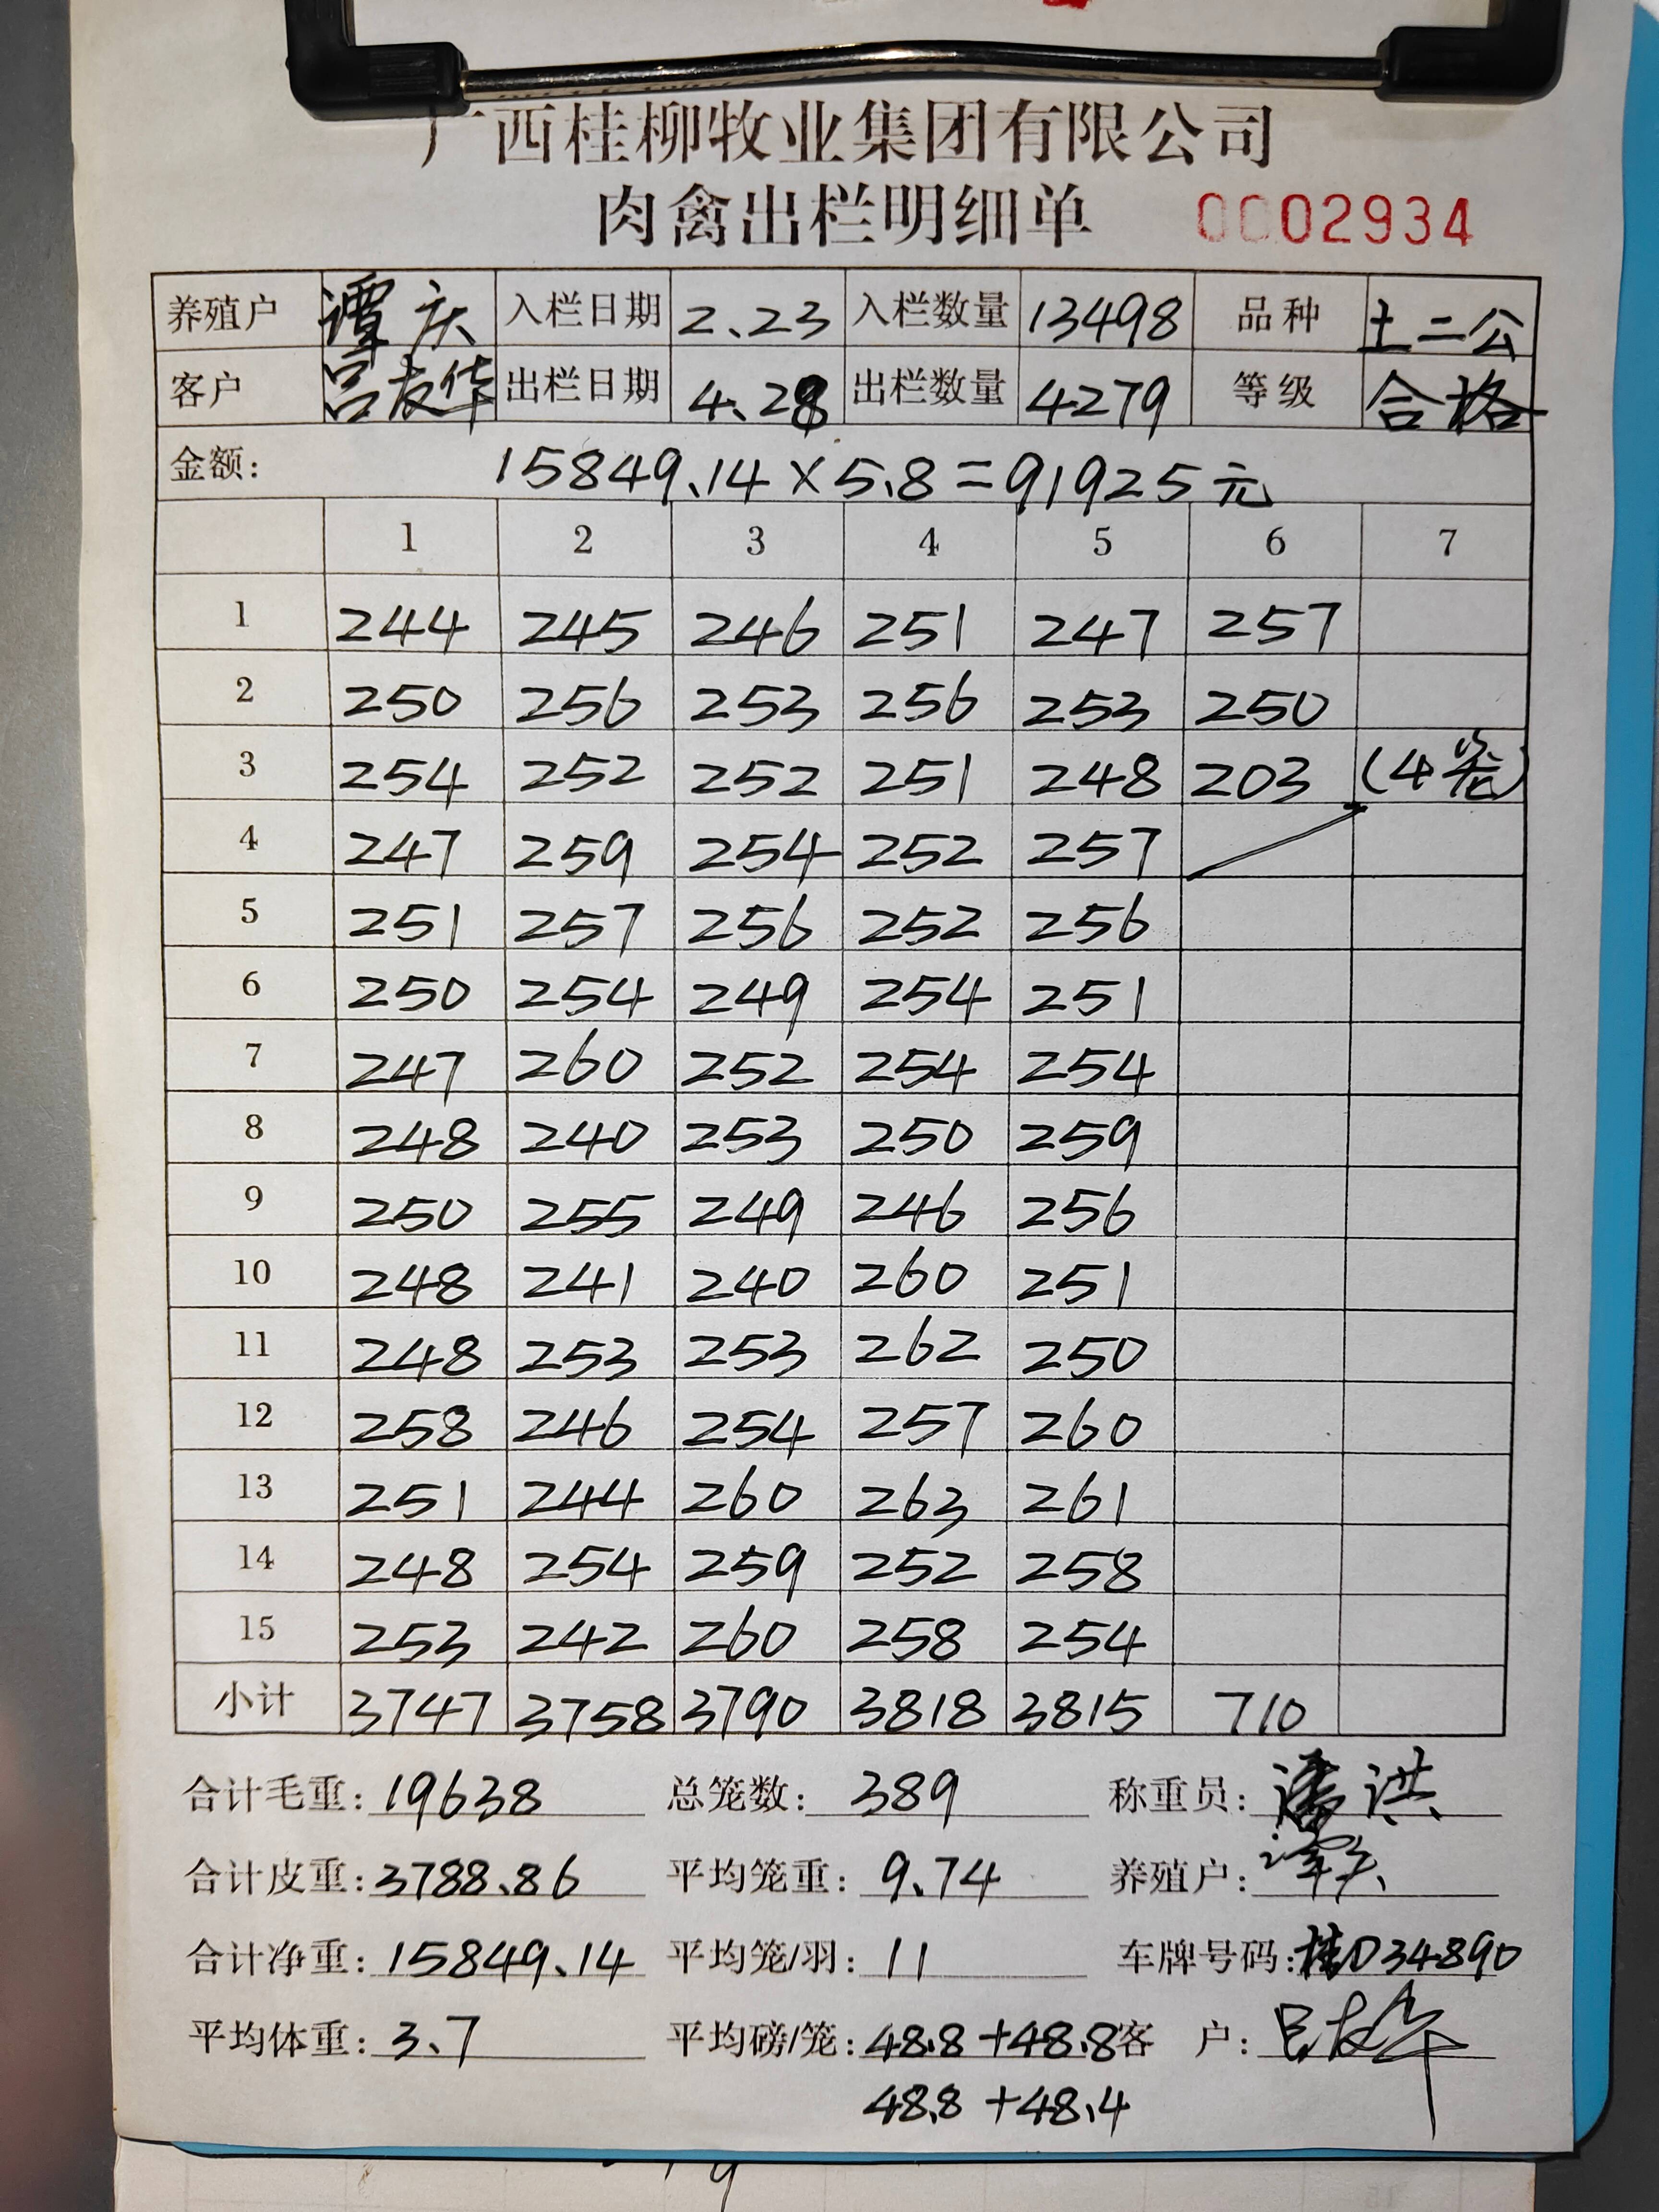 广西桂柳牧业集团有限公司
肉禽出栏明细单 0002934
养殖户 谭庆 入栏日期 2.23 入栏数量 13498 品种 土二公
客户 吕友华 出栏日期 4.28 出栏数量 4279 等级 合格
金额: 15849.14×5.8=91925元
1 2 3 4 5 6 7
1 244 245 246 251 247 257
2 250 256 253 256 253 250
3 254 252 252 251 248 203 (4笼)
4 247 259 254 252 257
5 251 257 256 252 256
6 250 254 249 254 251
7 247 260 252 254 254
8 248 240 253 250 259
9 250 255 249 246 256
10 248 241 240 260 251
11 248 253 253 262 250
12 258 246 254 257 260
13 251 244 260 263 261
14 248 254 259 252 258
15 253 242 260 258 254
小计 3747 3758 3790 3818 3815 710
合计毛重: 19638 总笼数: 389 称重员: 潘洪
合计皮重: 3788.86 平均笼重: 9.74 养殖户:
合计净重: 15849.14 平均笼/羽: 11 车牌号码: 桂D34890
平均体重: 3.7 平均磅/笼: 48.8+48.8 客户: 吕友华
48.8+48.4